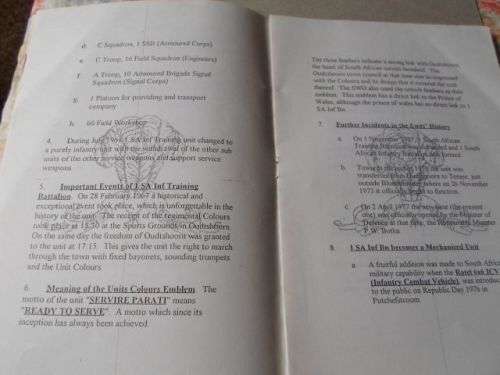 d. C Squadron, 1 SSB (Armoured Corps)
e. C Troop, 16 Field Squadron (Engineers)
f. A Troop, 10 Armoured Brigade Signal
Squadron (Signal Corps)
g. 1 Platoon for providing and transport
company
h. 66 Field Workshop
4. During July 1 SA Inf Training unit changed to
a purely infantry unit with the withdrawal of the other sub
units of the other service weapons and support service
weapons
5. Important Events of 1 SA Inf Training
Battalion. On 28 February 1967 a historical and
exceptional event took place, which is unforgettable in the
history of the unit. The receipt of the regimental Colours
took place at 15:30 at the Sports Grounds in Oudtshoorn
On the same day the freedom of Oudtshoorn was granted
to the unit at 17:15. This gives the unit the right to march
through the town with fixed bayonets, sounding trumpets
and the Unit Colours
6. Meaning of the Units Colours Emblem The
motto of the unit "SERVIRE PARATI" means
"READY TO SERVE". A motto which since its
inception has always been achieved
The three feathers indicate a strong link with Oudtshoorn,
the heart of South African ostrich farmland. The
Oudtshoorn town council at that time was so impressed
with the Colours and its design that it ensured the cost
thereof. The SWD also used the ostrich feathers as their
emblem. This emblem has a direct link to the Prince of
Wales, although the prince of wales has no direct link on 1
SA Inf Bn
7. Further Incidents in the Units' History
a. On 1 November 1973 South African
Training Battalion was disbanded and 1 South
African Infantry Battalion was formed
b. the unit was
transferred from Oudtshoorn to Tempe, just
outside Bloemfontein, where on 26 November
1973 it officially began to function.
c. On 2 April 1977 the new base (the present
one) was officially opened by the Minister of
Defence at that time, the Honourable Minister
P.W. Botha
8. 1 SA Inf Bn becomes a Mechanised Unit
a. A fruitful addition was made to South African
military capability when the Ratel 6x6 ICV
(Infantry Combat Vehicle), was introduced
to the public on Republic Day 1976 in
Potchefstroom